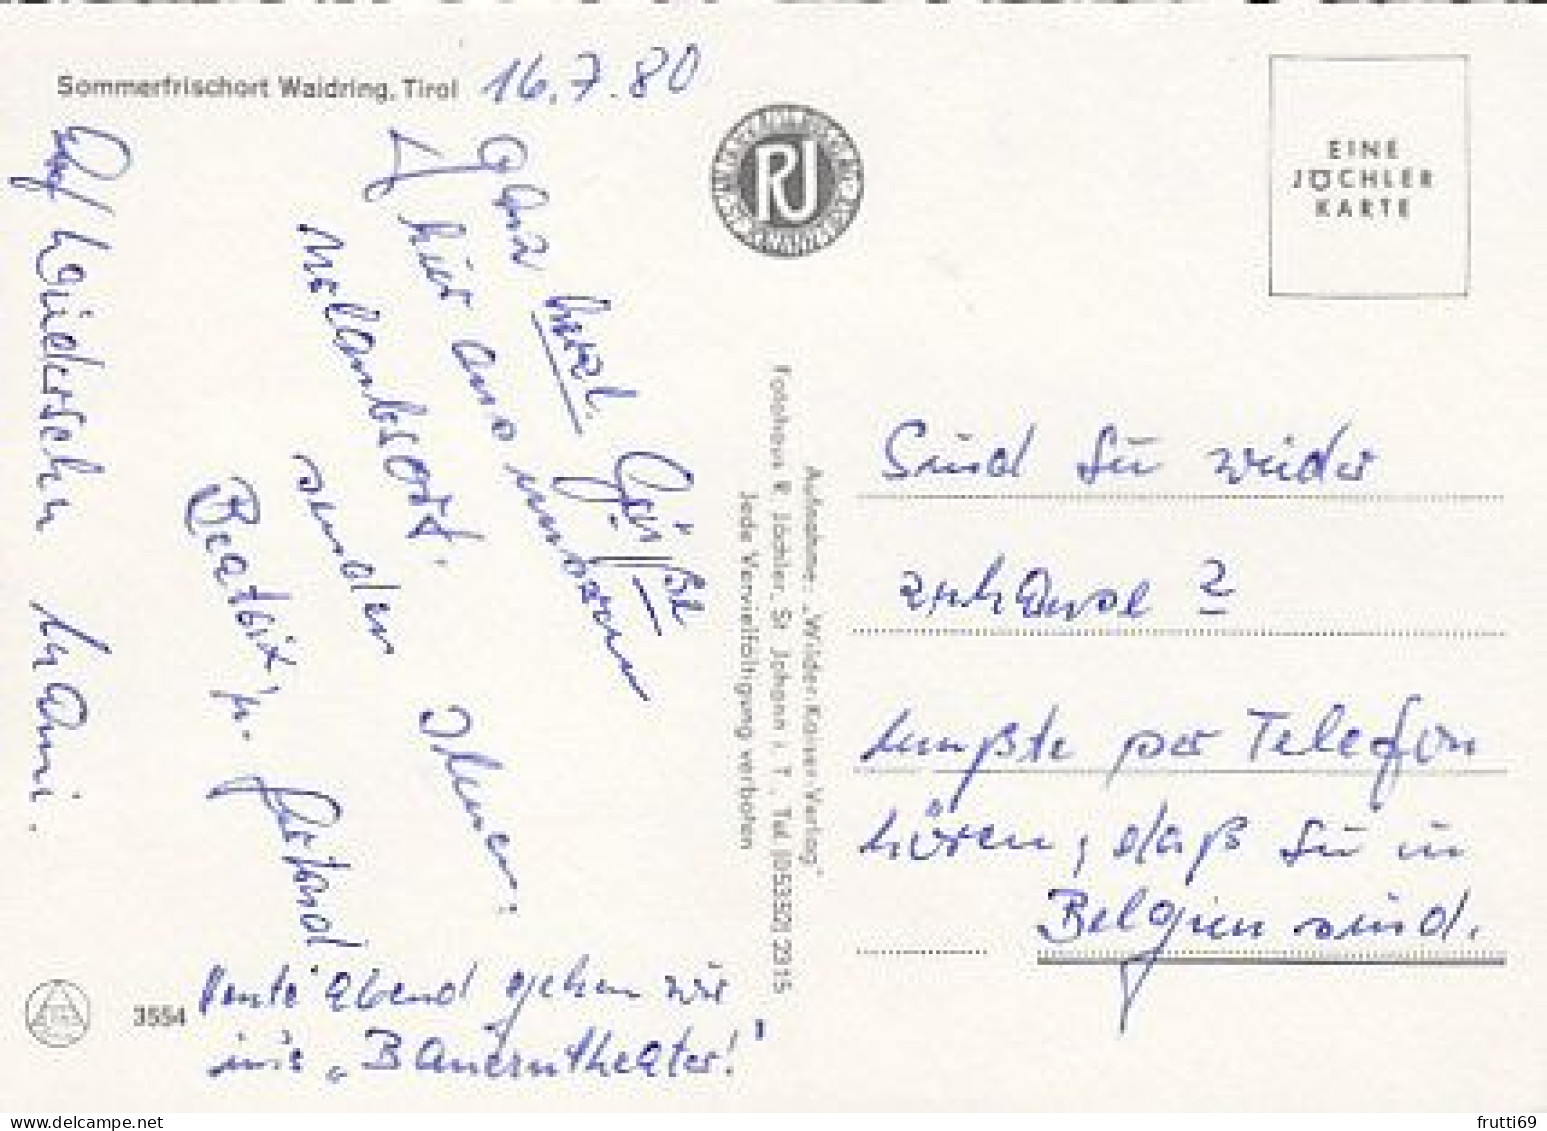 Sommerfrischort Waidring, Tirol
16.7.80
Sehr herzl. Grüße
hier aus unserem
Urlaubsort.
senden Ihnen:
Beatrix, u.
Auf Wiedersehn Mami.
Heute abend gehen wir
ins „Bauerntheater!"
3554
RJ
Aufnahme: „Wilder-Kaiser-Verlag"
Fotohaus R. Jöchler, St. Johann i. T., Tel. (05352) 2315
Jede Vervielfältigung verboten
EINE
JÖCHLER
KARTE
Sind Sie wieder
zuhause?
mußte per Telefon
hören, daß Sie in
Belgien sind.
frutti69